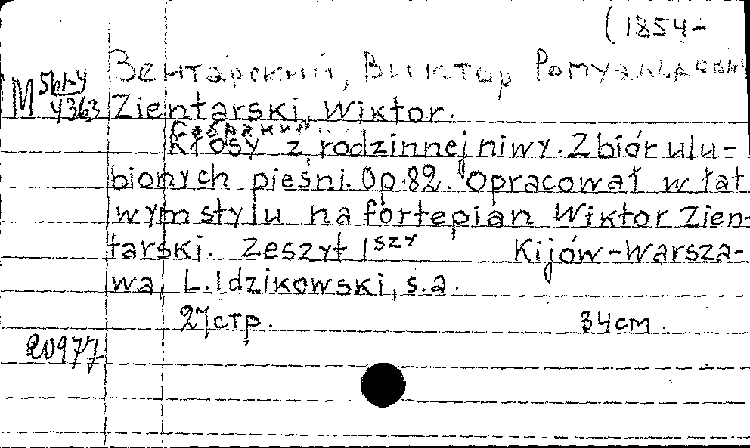 (1854-
Зентарский, Виктор Ромуальдович
M 5bry
4363 Zientarski, Wiktor.
Kłosy z rodzinnej niwy. Zbiór ulu-
bionych pieśni. Op. 82. Opracował w łat
wym stylu na fortepian Wiktor Zien-
tarski. Zeszyt 1szy Kijów-Warsza-
wa, L. Idzikowski, s.a.
27 стр. 34 см.
20977